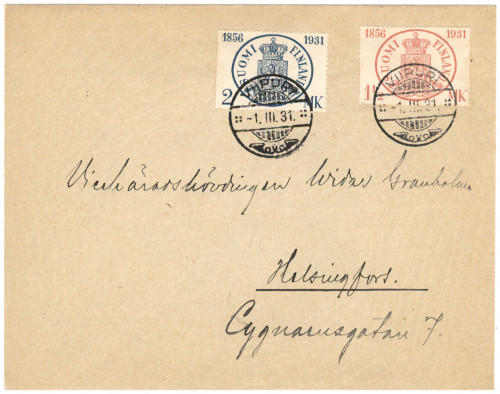 1856 1931
SUOMI FINLAND
2 MK
1856 1931
SUOMI FINLAND
1½ MK
VIIPURI
-1. III. 31.
VIIPURI
-1. III. 31.
Vicehäradshövdingen Widar Granholm
Helsingfors.
Cygnaeusgatan 7.